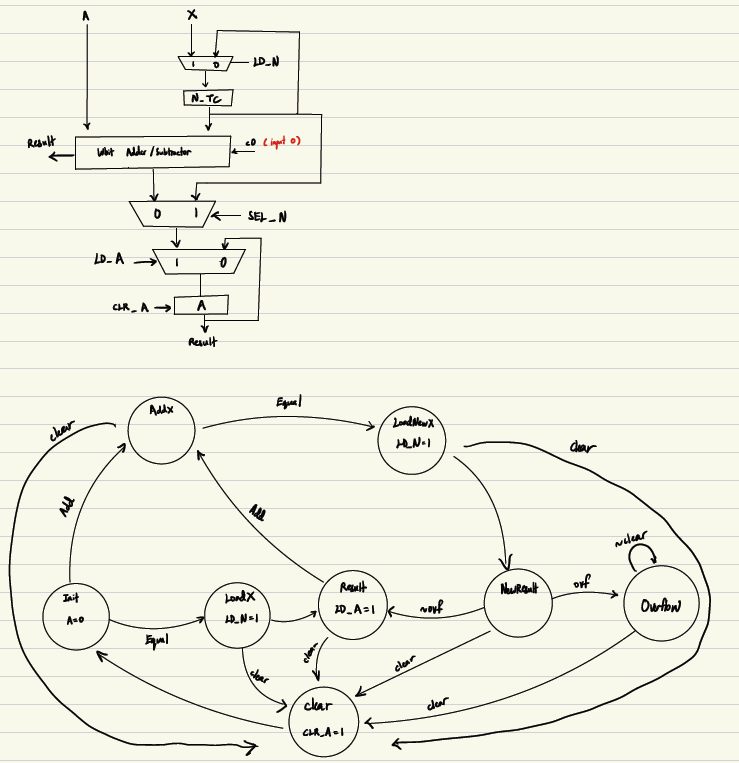 A X
1 0 LD_N
N_TC
Result
c0 (input 0)
Adder/Subtractor
0 1 SEL_N
LD_A 1 0
CLR_A A
Result
AddX
Equal
LoadNewX
LD_N=1
clear
clear
Add
Add
~clear
Init
A=0
Equal
LoadX
LD_N=1
Result
LD_A=1
~ovf
NewResult
ovf
Overflow
clear
clear
clear
clear
clear
CLR_A=1